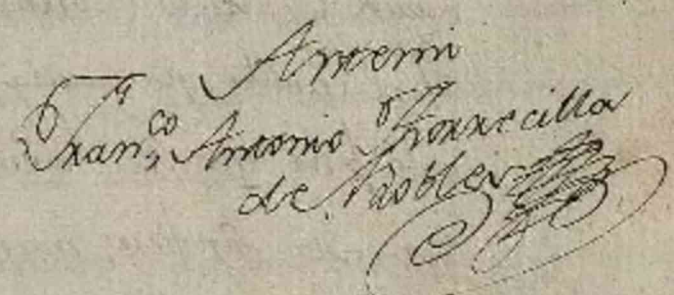 Antemi
Fran,co Antonio Torrecilla
de Robles